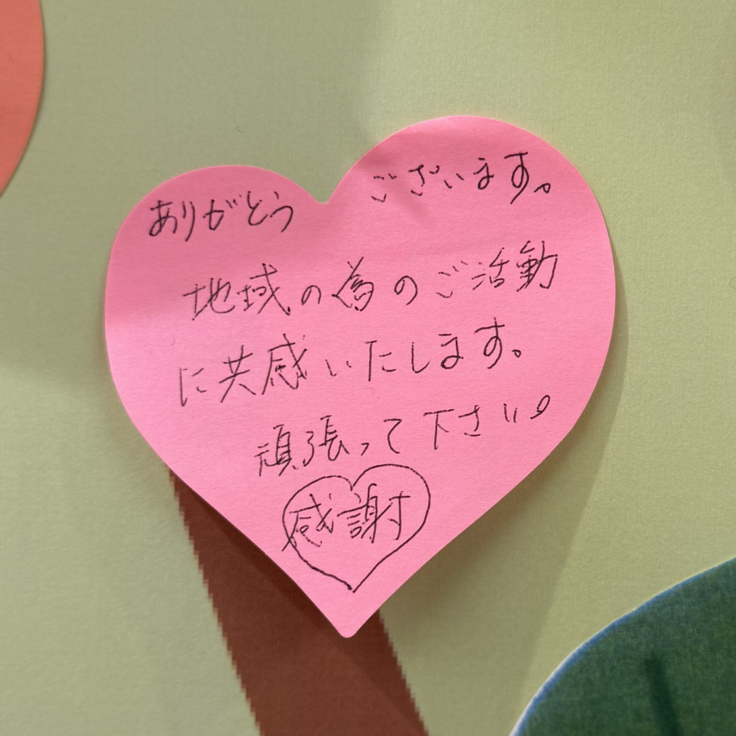 ありがとう ございます。
地域の為のご活動
に共感いたします。
頑張って下さい。
感謝